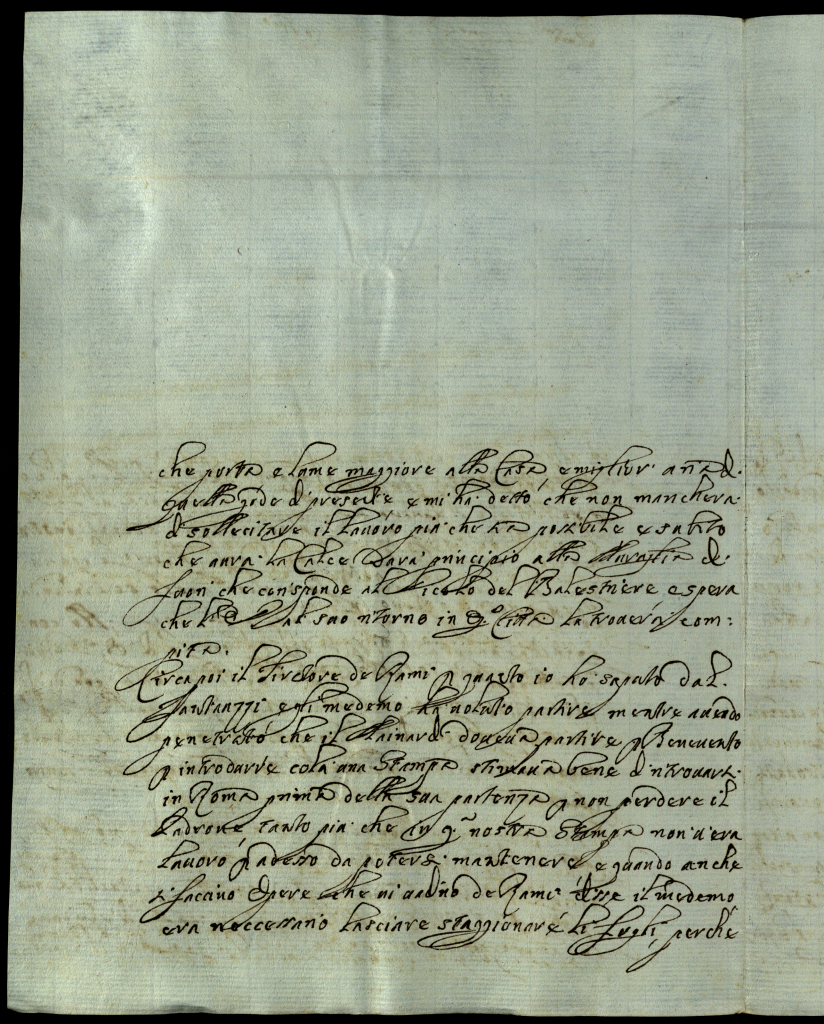 che porta e lume maggiore alla Casa e miglior' aria d.
quella gode di presente e mi ha detto che non mancherà
di sollecitare il lavoro più che ha possibile e subito
che avrà la Calce darà principio alla Muraglia di
fuori che corrisponde al Vicolo del Balestriere e spera
che al suo ritorno in q.ª Città la troverà com:
pita.
Circa poi il Tiretore de Rami p questo io ho saputo dal.
Santazzi egli medemo ha voluto partire mentre avendo
penetrato che il Mainardi doveva partire p Benevento
p introdurre colà una Stampa stimava bene di ritrovare
in Roma prima della sua partenza p non perdere il
Padrone tanto più che in q.ª nostra Stampa non v'era
lavoro p adesso da potersi mantenere e quando anche
si faccino Opere che vi vadino de Rami disse il medemo
era neccessario lasciare staggionare li fogli, perche